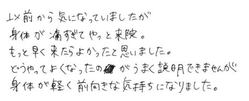 以前から気になっていましたが
身体が痛すぎてやっと来院。
もっと早く来たらよかったと思いました。
どうやってよくなったのがうまく説明できませんが
身体が軽く前向きな気持ちになりました。